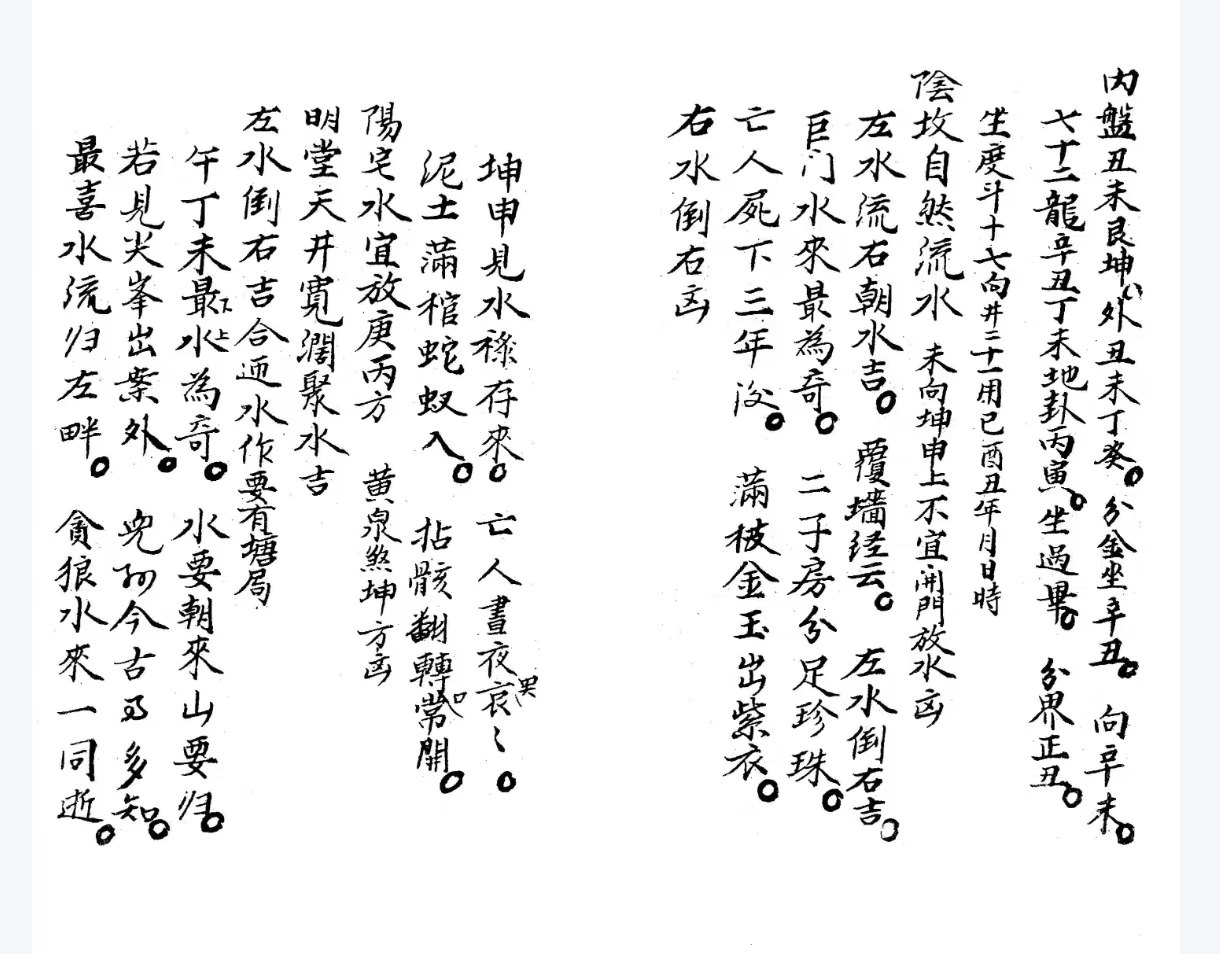 內盤丑未艮坤。外丑未丁癸。分金坐辛丑。向辛未。
七十二龍辛丑丁未地卦丙寅。坐過畢。分界正丑。
坐度斗十七向井三十一用巳酉丑年月日時
陰坟自然流水 未向坤申上不宜開門放水凶
左水流右朝水吉。覆墻经云。左水倒右吉。
巨门水來最為奇。二子房分足珍珠。
亡人屍下三年没。滿板金玉出紫衣。
右水倒右凶
坤申見水祿存來。亡人晝夜哀哀哭。
泥土滿棺蛇蚁入。拈骸翻轉常開口。
陽宅水宜放庚丙方 黄泉煞坤方凶
明堂天井寬濶聚水吉
左水倒右吉合迎水作要有塘局
午丁未上水最為奇。水要朝來山要归。
若見尖峯出案外。兒孙今古多知。
最喜水流归左畔。貪狼水來一同逝。